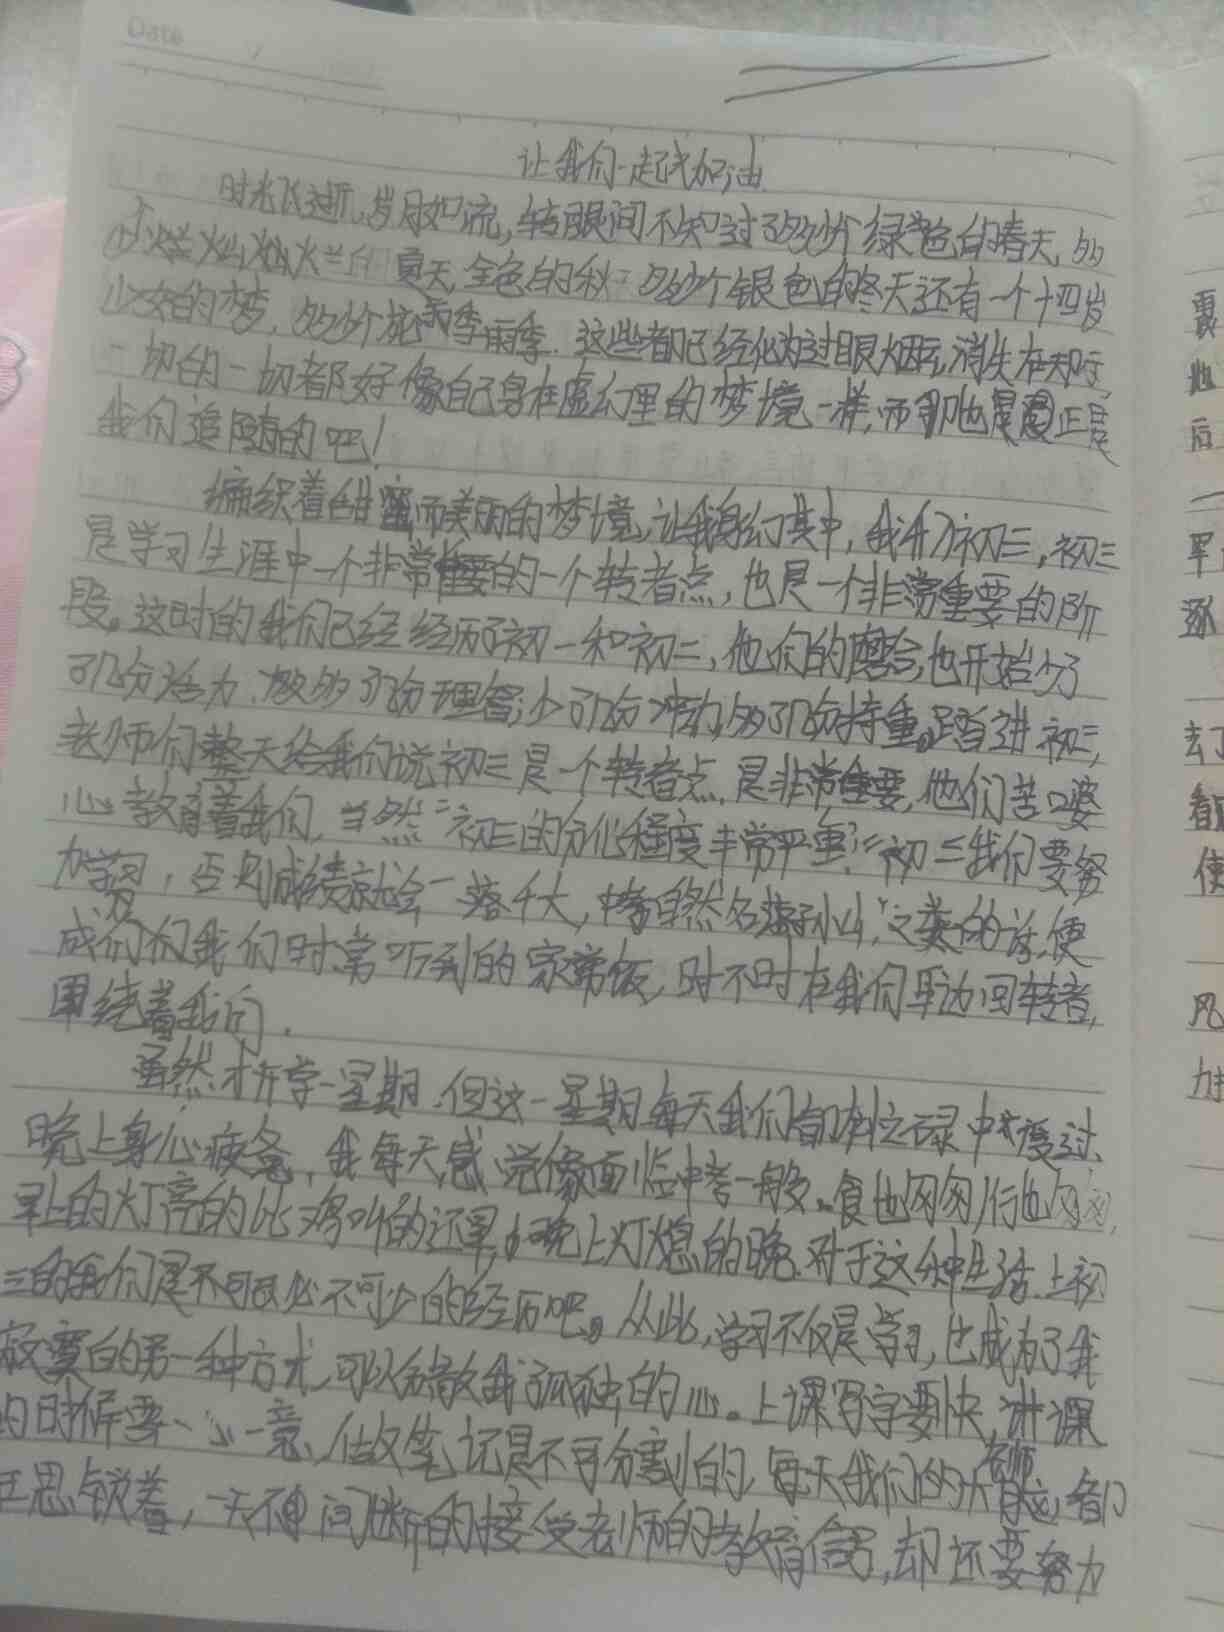 Date
让我们一起找加油
时光飞逝,岁月如流,转眼间不知过了多少个绿色的春天,多
少灿烂的夏天,金色的秋天 多少个银色的冬天还有一个十四岁
少女的梦,多少个花季雨季.这些都已经化为过眼烟云,消失在
一切的一切都好像自己身在虚幻里的梦境一样,而那也是正是
我们追随的吧!
编织着甜蜜而美丽的梦境,让我身幻其中,我们初三,初三
是学习生涯中一个非常重要的一个转着点,也是一个非常重要的阶
段。这时的我们已经经历了初一和初二,他们的磨合,也开始少了
了几分活力,多了几份理智;少了几份冲动,多了几份持重。踏进初三,
老师们整天给我们说初三是一个转着点,是非常重要,他们苦口婆
心教育着我们,当然"初三的分化程度非常严重""初三我们要努
力学习,否则成绩就会一落千丈,中考自然名落孙山"之类的话,便
成为们我们时常听到的家常饭,时不时在我们耳边回转着,
围绕着我们.
虽然才开学一星期,但这一星期每天我们都在忙碌中度过,
晚上身心疲惫,我每天感觉像面临中考一般。食也匆匆,行也匆匆,
早上的灯亮的比鸡叫的还早,晚上灯熄的晚.对于这种生活上初
三的我们是不可或少不可少的经历吧。从此,学习不仅是学习,也成为了我
寂寞的另一种方式,可以消散我孤独的心。上课写字要快,讲课
的时候要一心一意,做笔记是不可分割的,每天我们的大脑都
老师
思锁着,一天不间断的接受老师的教育信号,却还要努力